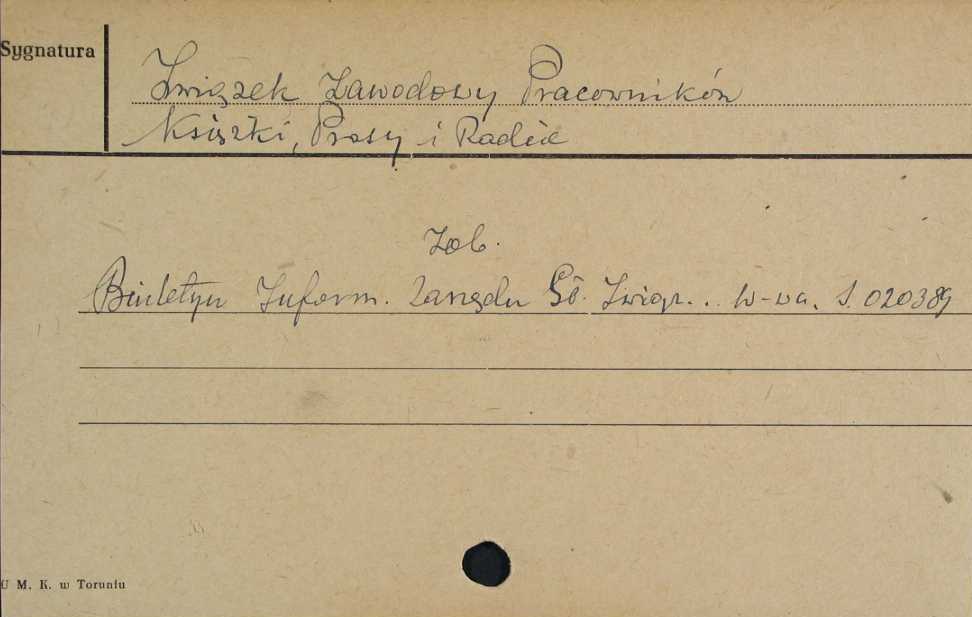 Sygnatura
Związek Zawodowy Pracowników
Książki, Prasy i Radia
Zob.
Biuletyn Inform. Zarządu Gł. Związ... W-wa. S. 020389
U M. K. w Toruniu